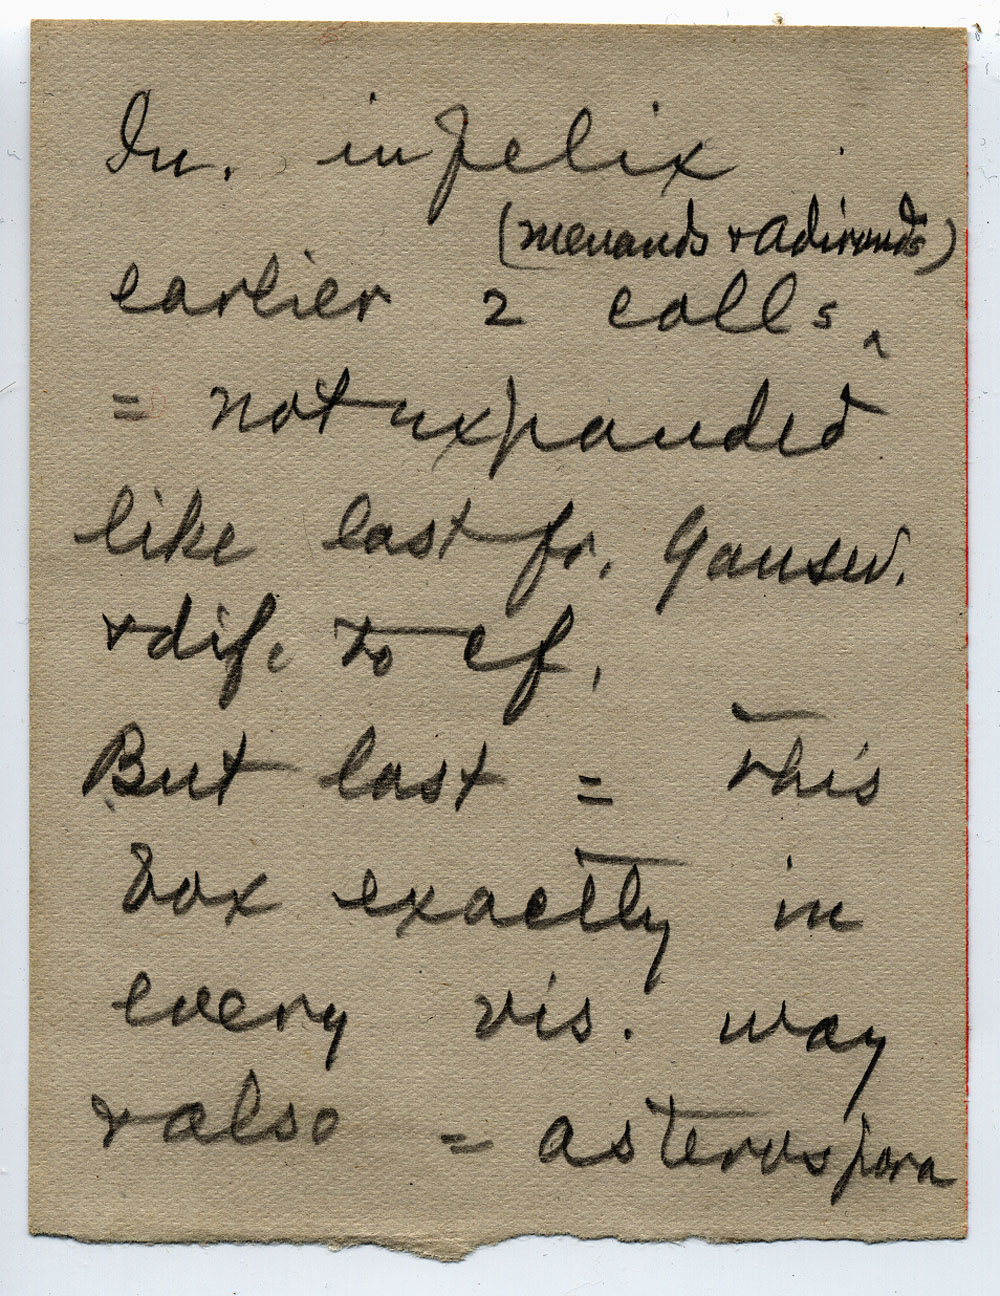 In. infelix
(menands & adironds)
earlier 2 colls ‸
= not expanded
like last fr. Gansev.
& dif. to cf.
But last = this
box exactly in
every vis. way
& also = asterospora